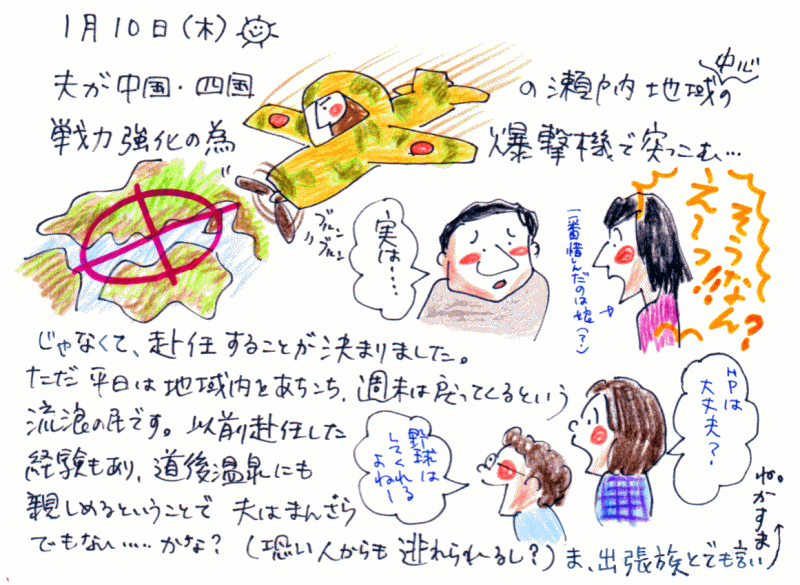 1月10日(木)
夫が中国・四国の瀬戸内地域の中心
戦力強化の為爆撃機で突っこむ…
ブルンブルン
実は・・・・
一番惜しんだのは娘(?)
えーっ!!そうなん?
じゃなくて、赴任することが決まりました。
ただ平日は地域内をあちこち、週末は戻ってくるという
流浪の民です。以前赴任した
経験もあり、道後温泉にも
親しめるということで 夫はまんざら
でもない・・・・・かな?(恐い人からも逃れられーるし?)ま、出張族とでも言い
ますかね。
野球は
してくれる
よねー
HPは
大丈夫?